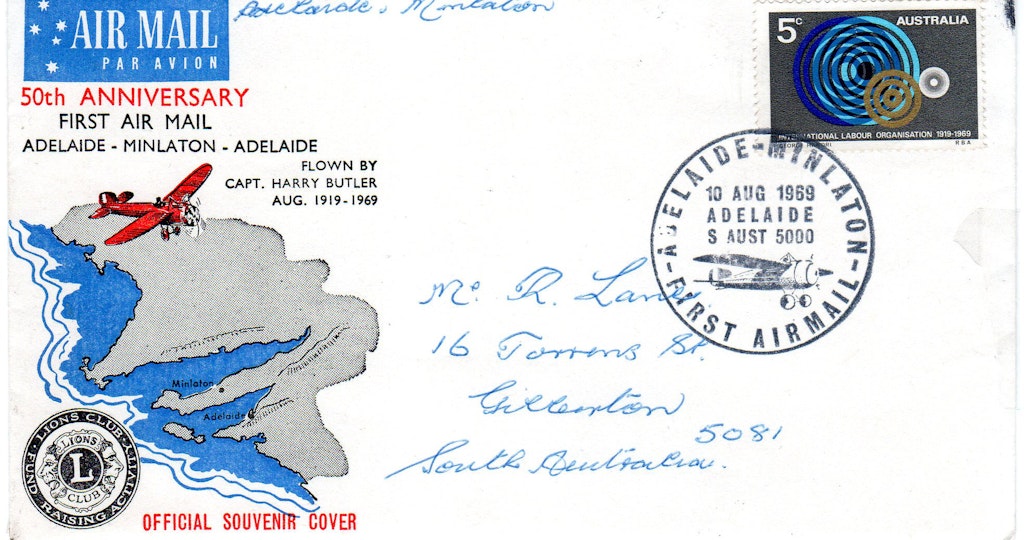 Adelaide - Minlaton
AIR MAIL
PAR AVION
5c
AUSTRALIA
INTERNATIONAL LABOUR ORGANISATION 1919-1969
RBA
50th ANNIVERSARY
FIRST AIR MAIL
ADELAIDE - MINLATON - ADELAIDE
FLOWN BY
CAPT. HARRY BUTLER
AUG. 1919-1969
ADELAIDE-MINLATON
10 AUG 1969
ADELAIDE
S AUST 5000
FIRST AIRMAIL
Mr. R. Lane
16 Torrens St.
Gilberton
5081
South Australia.
Minlaton
Adelaide
LIONS CLUB ACTIVITY
FUND RAISING
LIONS
L
CLUB
OFFICIAL SOUVENIR COVER